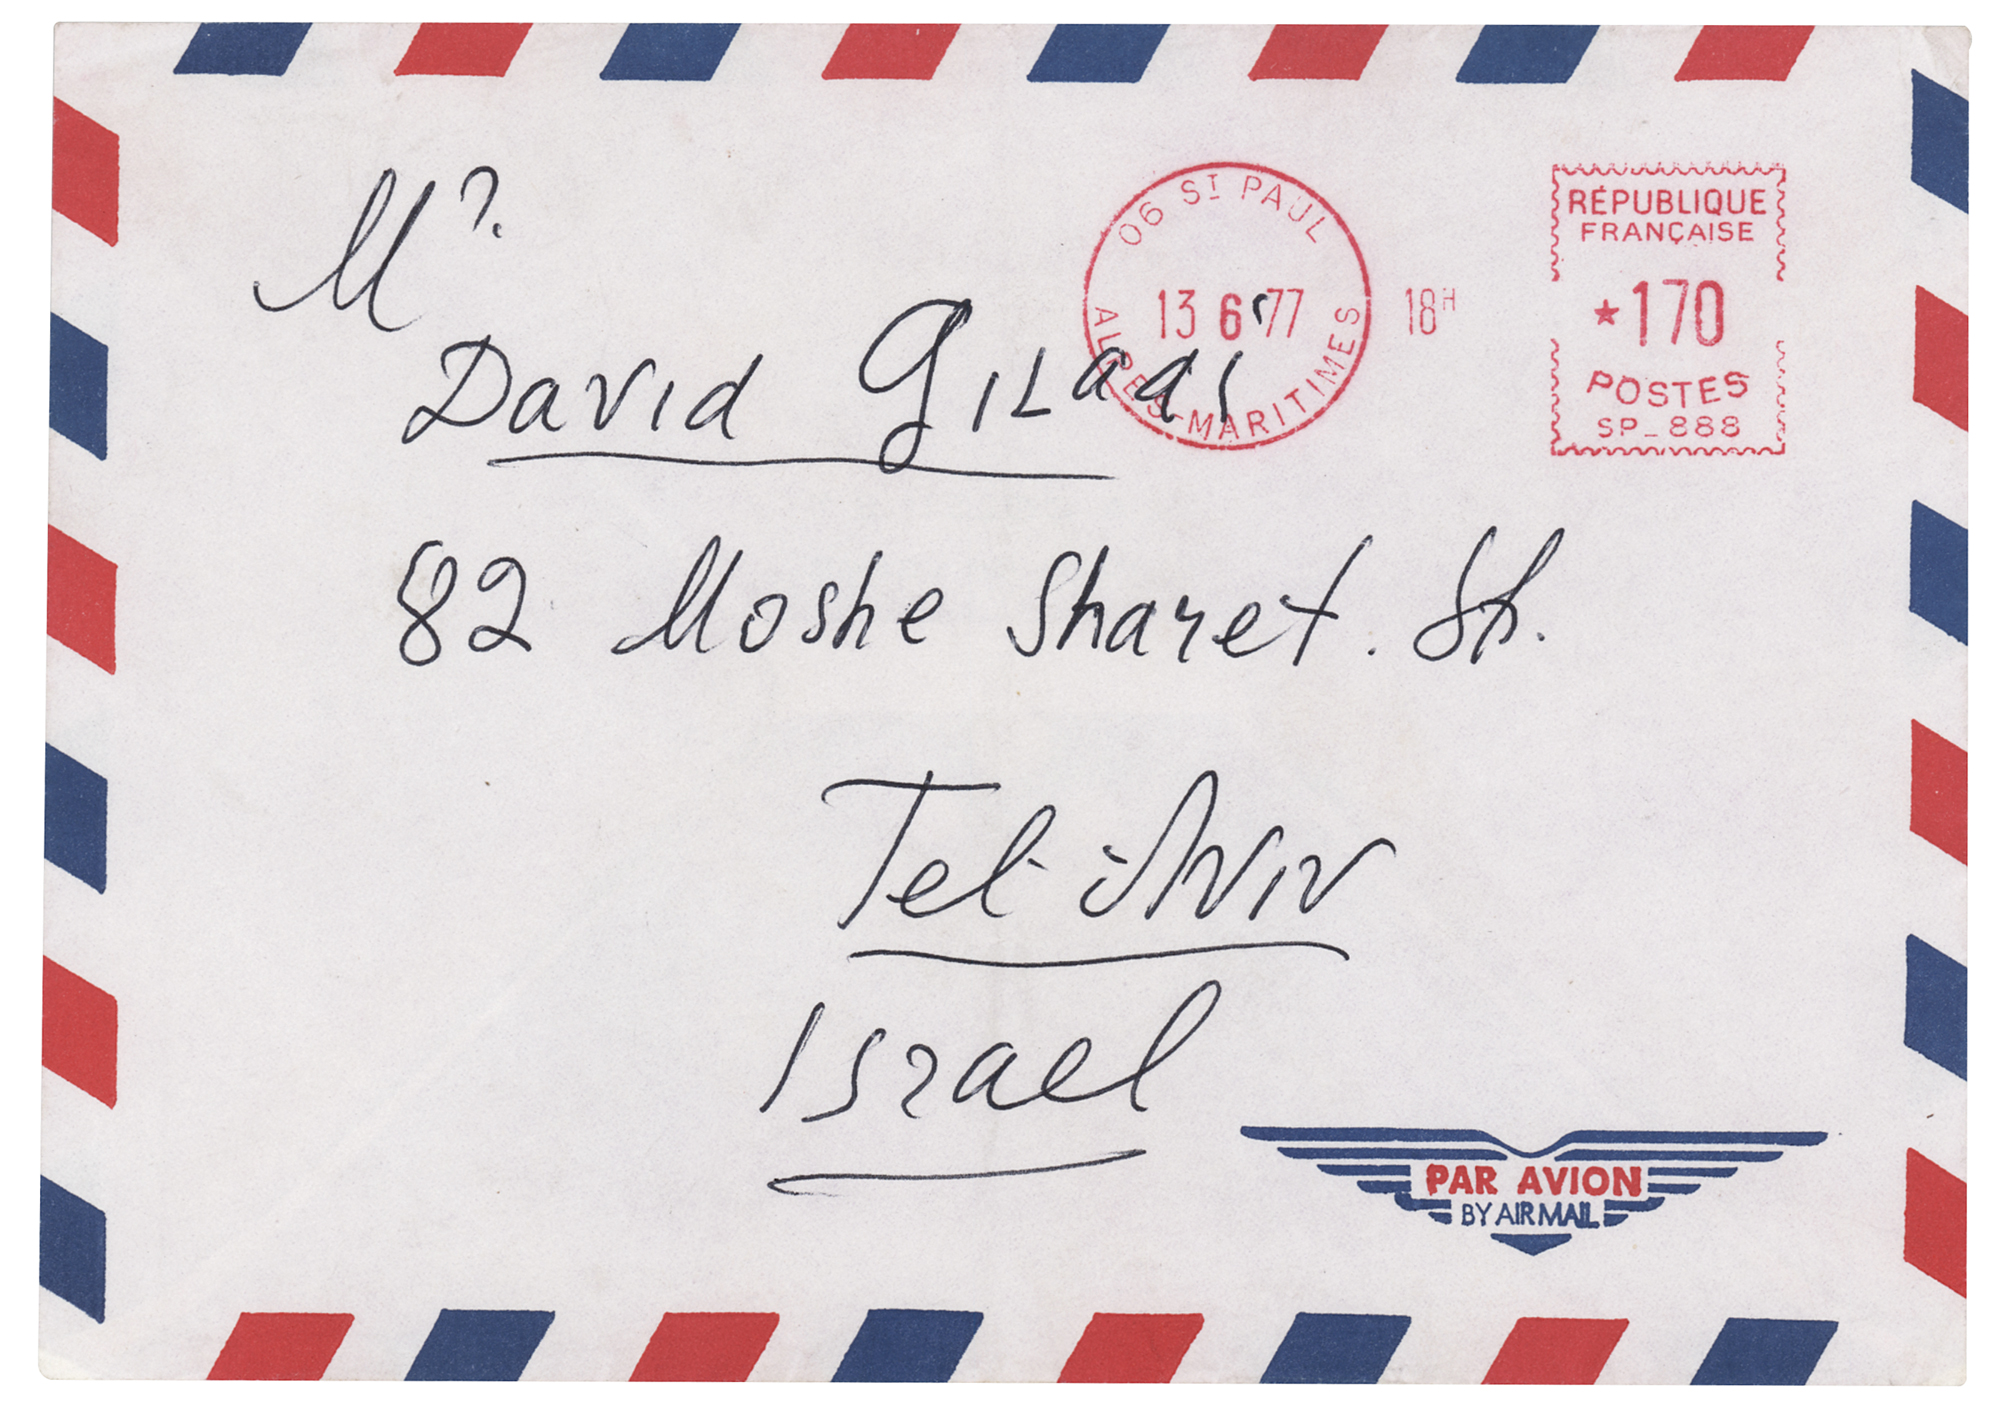 Mr.
David Giladi
82 Moshe Sharet. St.
Tel-Aviv
Israel
06 ST PAUL
13 6 77
ALPES-MARITIMES
18H
RÉPUBLIQUE
FRANÇAISE
*170
POSTES
SP_888
PAR AVION
BY AIR MAIL